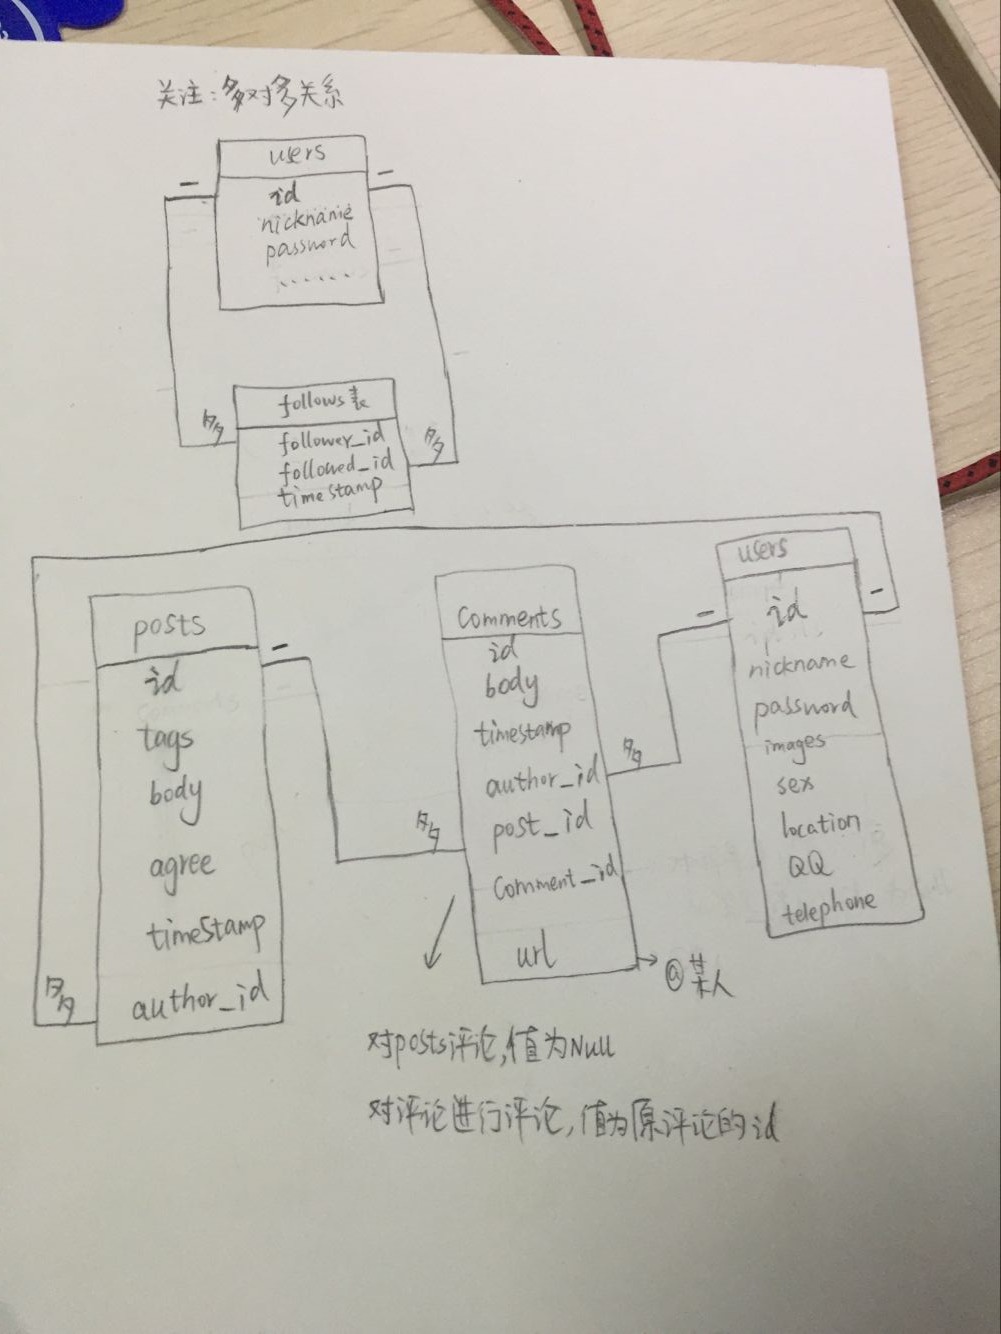 关注:多对多关系
users
一
一
id
nickname
password
......
follows表
多
多
follower_id
followed_id
timestamp
posts
一
id
tags
body
agree
timestamp
author_id
多
Comments
id
body
timestamp
author_id
多
post_id
多
Comment_id
url
@某人
users
一
一
id
nickname
password
images
sex
location
QQ
telephone
对posts评论,值为Null
对评论进行评论,值为原评论的id